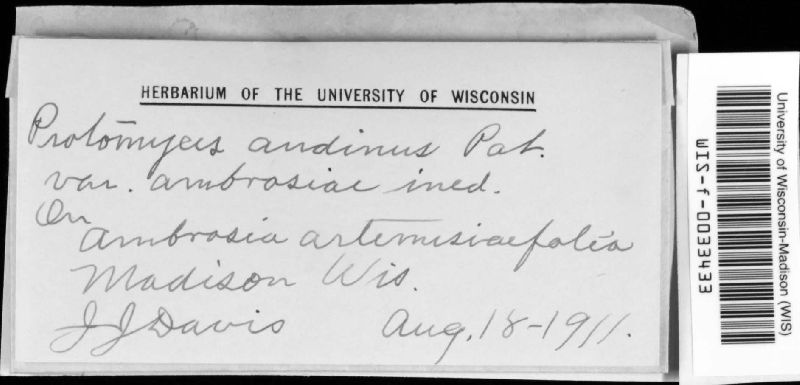 HERBARIUM OF THE UNIVERSITY OF WISCONSIN
Protomyces andinus Pat.
var. ambrosiae ined.
On
Ambrosia artemisiaefolia
Madison Wis.
J J Davis Aug. 18-1911.
University of Wisconsin-Madison (WIS)
WIS-f-0033433